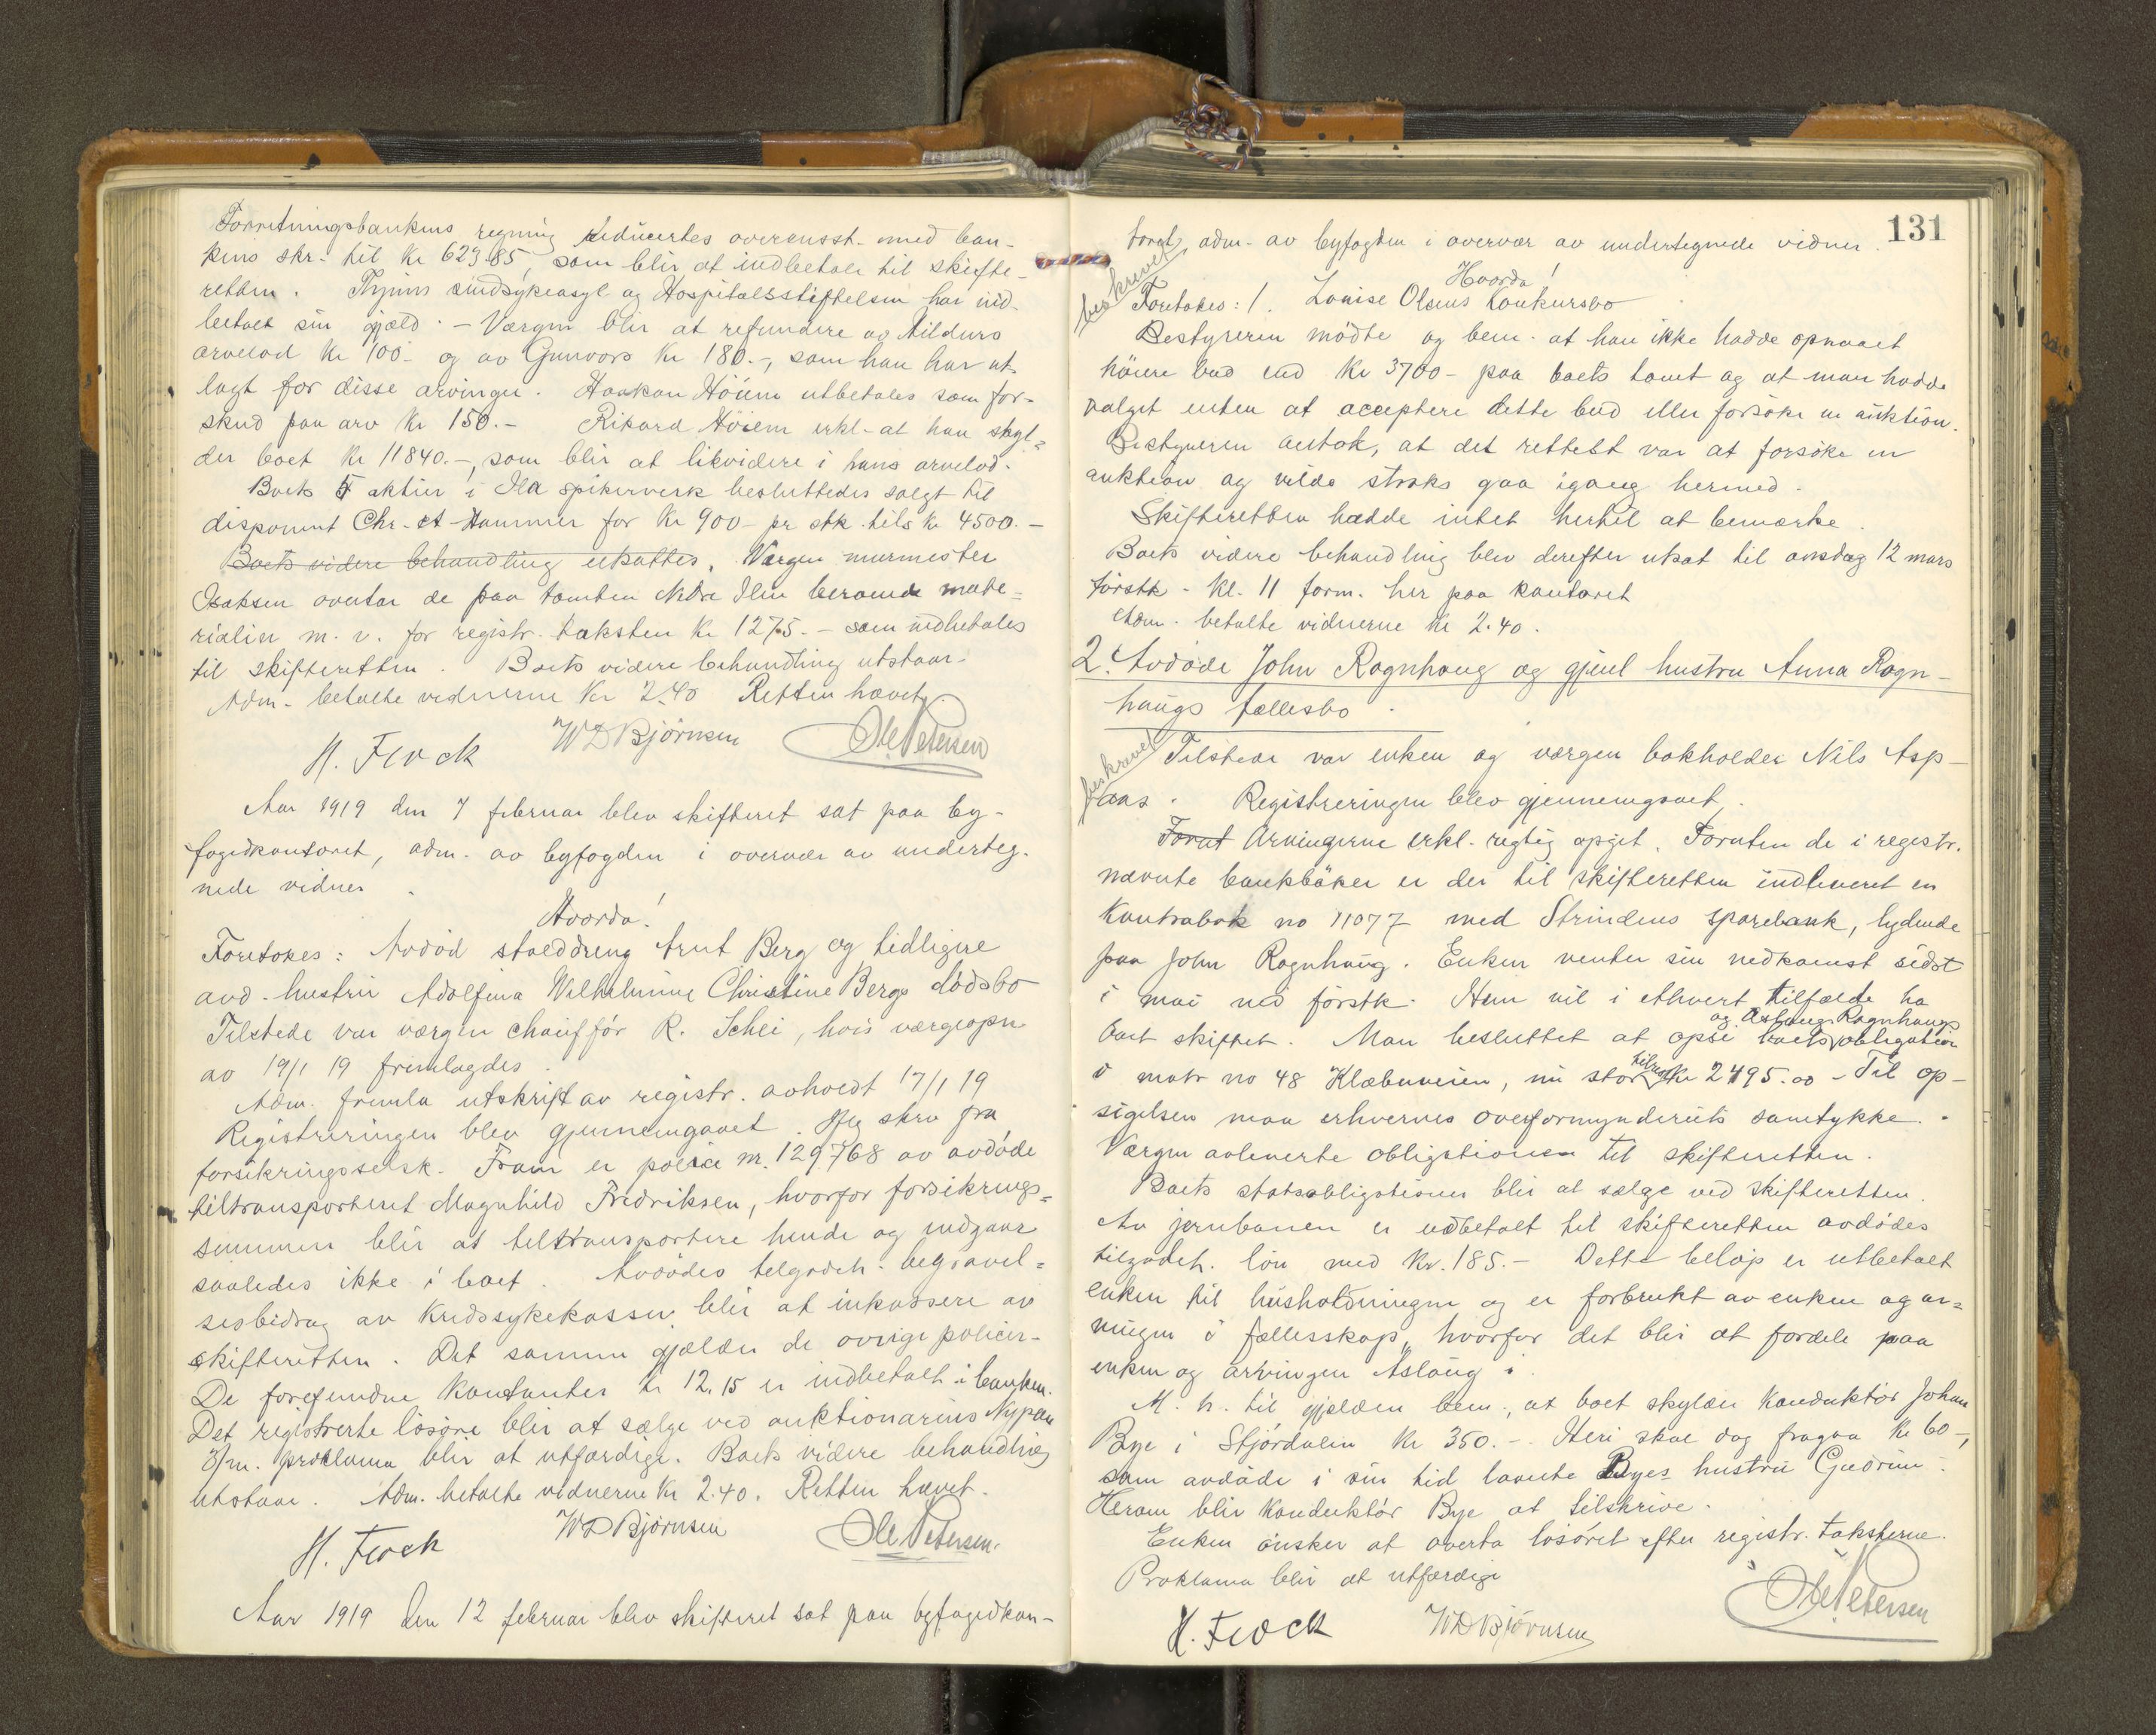 Forretningsbankens regning reducertes overensst. med ban-
kens skr. til kr 623.85, som blir at indbetale til skifte-
retten. Thjims sindsykeasyl og Hospitalsstiftelsen har ind-
betalt sin gjæld. - Værgen blir at refundere av Hildurs
arvelod kr 100.- og av Gunvors kr 180.-, som han har ut-
lagt for disse arvinger. Haakon Höiem utbetales som for-
skud paa arv kr 150.- Rikard Höiem erkl. at han skyl-
der boet kr 11840.-, som blir at likvidere i hans arvelod.
Boets 5 aktier i Ila spikerverk besluttedes solgt til
disponent Chr. A. Hammer for kr 900- pr stk. tils kr 4500.-
Boets videre behandling utsattes. Værgen murmester
Isaksen overtar de paa tomten Nedre Ilen beroende mate-
rialier m. v. for registr. taksten kr 1275.- som indbetales
til skifteretten. Boets videre behandling utstaar.
Adm. betalte vidnerne kr 2.40 Retten hævet.
H. Flock WD Björnsen Ole Petersen
Aar 1919 den 7 februar blev skifteret sat paa by-
fogedkontoret, adm. av byfogden i overvær av underteg-
nede vidner.
Hvorda!
Foretokes: Avdöd stalddreng Arnt Berg og tidligere
avd. hustru Adolfina Wilhelmine Christine Bergs dödsbo
Tilstede var værgen chauffør R. Schei, hvis værgeopn
av 19/1 19 fremlagdes.
Adm. fremla utskrift av registr. avholdt 17/1 19
Registreringen blev gjennemgaaet. Iflg skriv fra
forsikringsselsk. Fram er police nr. 129768 av avdöde
tiltransporteret Magnhild Fredriksen, hvorfor forsikrings-
summen blir at tiltransportere hende og indgaar
saaledes ikke i boet. Avdödes tilgodeh. begravel-
sesbidrag av Kredssykekassen blir at inkassere av
skifteretten. Det samme gjælder de övrige policer.
De forefundne kontanter kr 12.15 er indbetalt i banken.
Det registrerte lösöre blir at sælge ved auktionarius Nypan
3/m. proklama blir at utfærdige. Boets videre behandling
utstaar. Adm. betalte vidnerne kr 2.40. Retten hævet.
H. Flock WD Björnsen Ole Petersen.
Aar 1919 den 12 februar blev skifteret sat paa byfogedkon-
131
toret, adm. av byfogden i overvær av undertegnede vidner.
Hvorda!
beskrevet
Foretokes: 1. Louise Olsens konkursbo
Bestyreren mödte og bem. at han ikke hadde opnaaet
höiere bud end kr 3700- paa boets tomt og at man hadde
valget enten at acceptere dette bud eller forsöke en auktion.
Bestyreren antok, at det rettest var at forsöke en
auktion og vilde straks gaa igang hermed.
Skifteretten hadde intet hertil at bemærke.
Boets videre behandling blev derefter utsat til onsdag 12 mars
förstk. kl. 11 form. her paa kontoret
Adm. betalte vidnerne kr 2.40.
2. Avdöde John Rognhaug og gjenl hustru Anna Rogn-
haugs fællesbo.
beskrevet
Tilstede var enken og værgen bokholder Nils Asp-
aas. Registreringen blev gjennemgaaet.
Forut Arvingerne erkl. rigtig opgit. Foruten de i registr.
nævnte bankböker er der til skifteretten indleveret en
Kontrabok no 11077 med Strindens sparebank, lydende
paa John Rognhaug. Enken venter sin nedkomst sidst
i mai md förstk. Hun vil i ethvert tilfælde ha
boet skiftet. Man besluttet at opsi boets og Aslaug Rognhaugs obligation
i matr no 48 Klæbuveien, nu stor tils kr 2495.00 - Til op-
sigelsen maa erhverves overformynderiets samtykke.
Værgen avleverte obligationen til skifteretten.
Boets statsobligationer blir at sælge ved skifteretten.
Av jernbanen er utbetalt til skifteretten avdödes
tilgodeh. lön med kr. 185.- Dette belöp er utbetalt
enken til husholdningen og er forbrukt av enken og ar-
vingen i fællesskap, hvorfor det blir at fordele paa
enken og arvingen Aslaug.
M. h. til gjælden bem., at boet skylder konduktör Johan
Bye i Stjördalen kr 350.-. Heri skal dog fragaa kr 60-,
som avdöde i sin tid laante Byes hustru Gudrun.
Herom blir konduktör Bye at tilskrive.
Enken önsker at overta lösöret efter registr. taksterne.
Proklama blir at utfærdige
H. Flock WD Björnsen Ole Petersen